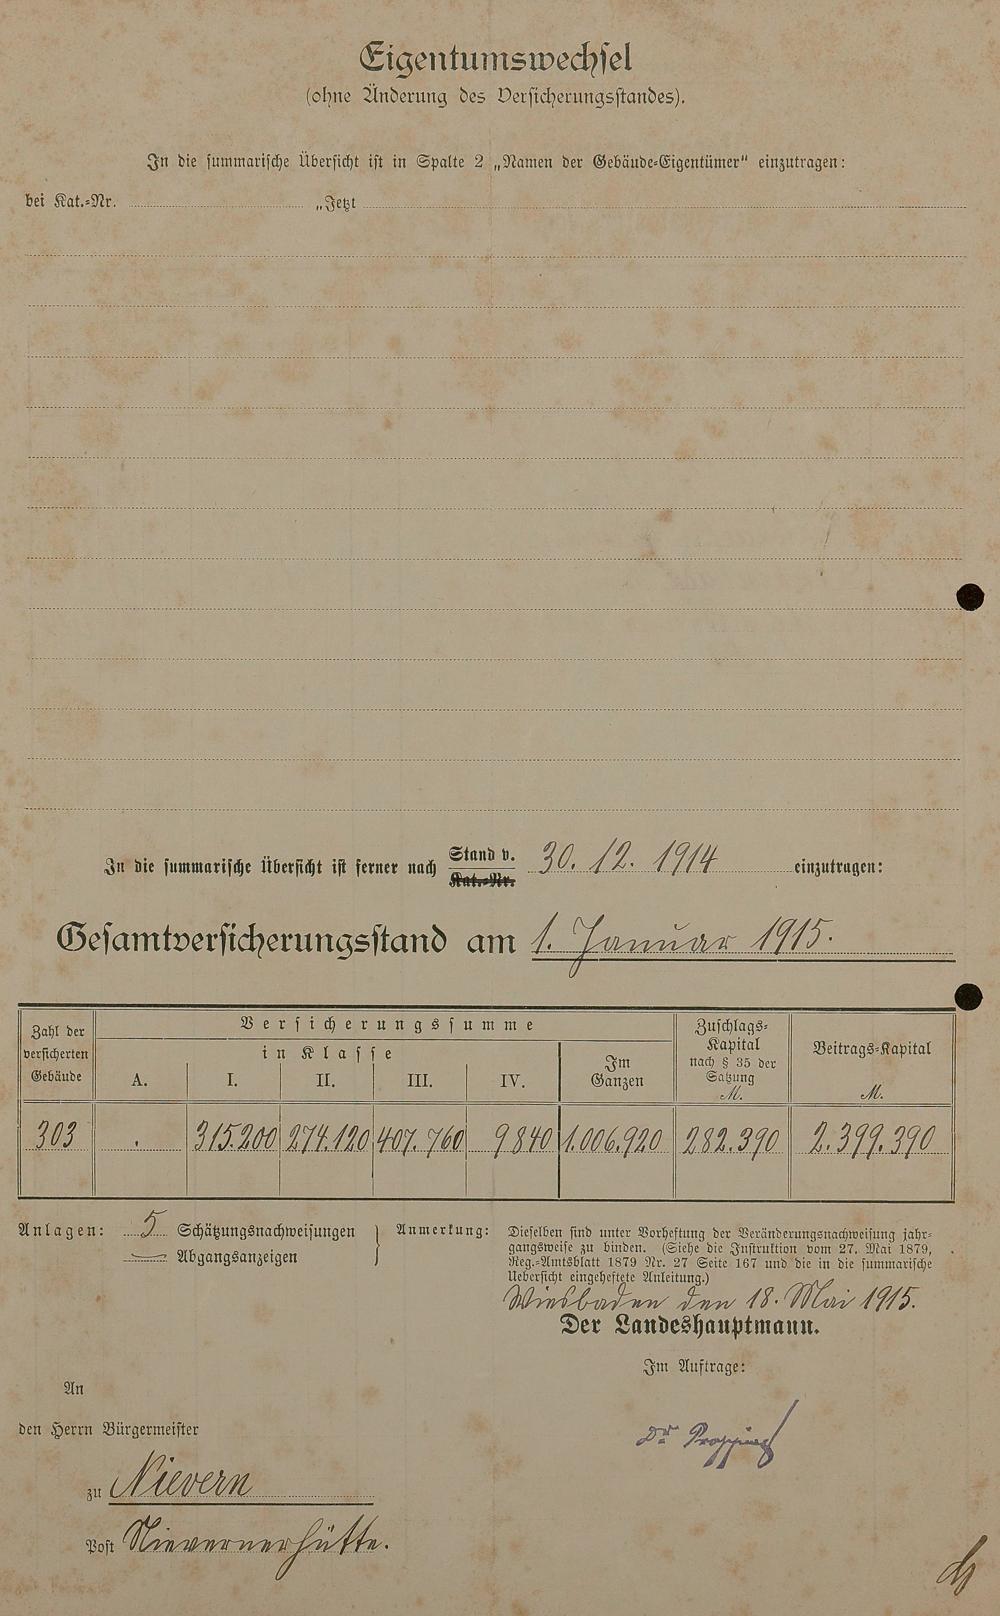 Eigentumswechsel
(ohne Änderung des Versicherungsstandes).
In die summarische Übersicht ist in Spalte 2 „Namen der Gebäude-Eigentümer" einzutragen:
bei Kat.-Nr. „Jetzt
In die summarische Übersicht ist ferner nach Stand v. 30. 12. 1914 einzutragen:
Kat.-Nr.
Gesamtversicherungsstand am 1. Januar 1915.
Zahl der versicherten Gebäude
Versicherungssumme
in Klasse
A. I. II. III. IV.
Im Ganzen
Zuschlags-Kapital nach § 35 der Satzung M.
Beitrags-Kapital M.
303 . 315.200 274.120 407.760 9840 1.006.920 282.390 2.399.390
Anlagen: 5 Schätzungsnachweisungen
— Abgangsanzeigen
Anmerkung: Dieselben sind unter Vorheftung der Veränderungsnachweisung jahr-
gangsweise zu binden. (Siehe die Instruktion vom 27. Mai 1879,
Reg.-Amtsblatt 1879 Nr. 27 Seite 167 und die in die summarische
Uebersicht eingeheftete Anleitung.)
Wiesbaden den 18. Mai 1915.
Der Landeshauptmann.
Im Auftrage:
An
den Herrn Bürgermeister
Dr.
zu Nievern
Post Nievernerhütte.